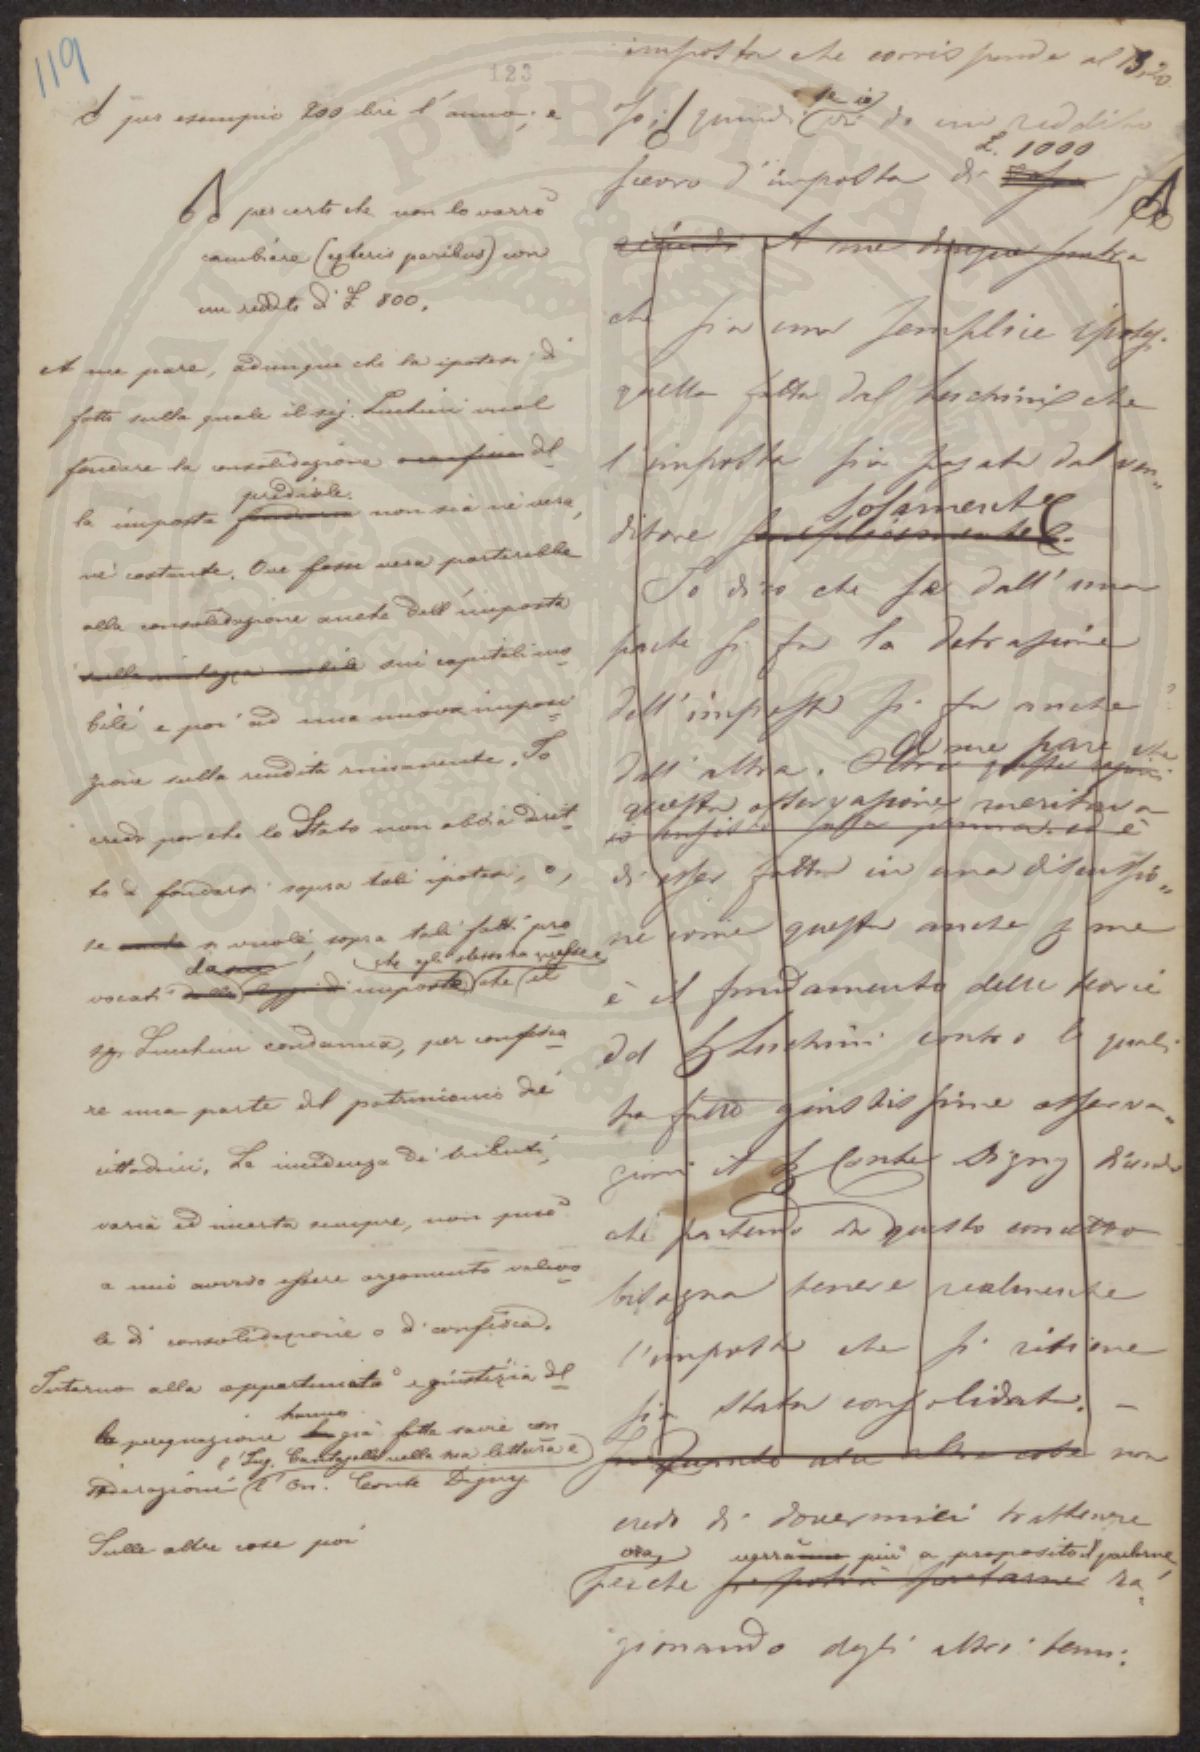 119
123
imposta che corrisponde al 13,20
per esempio 200 lire l'anno; e
per certo che non lo vorrò
cambiare (ceteris paribus) con
un reddito di £ 800.
A me pare, adunque che la ipotesi di
fatto sulla quale il sig. Luchini vuol
fondare la consolidazione del
prediale
la imposta fondiaria non sia nè vera,
nè costante. Ove fosse vera porterebbe
alla consolidazione anche dell'imposta
sulla ricchezza mobile sui capitali mo
bili e poi ad una nuova imposi
zione sulla rendita rimanente. Io
credo poi che lo Stato non abbia dirit-
to di fondarsi sopra tali ipotesi, o,
se si vuole, sopra tali fatti pro
che egli stesso ha
vocati dalle leggi di imposte, che il
sig. Luchini condanna, per confisca
re una parte del patrimonio dei
cittadini. La incidenza dei tributi,
varia ed incerta sempre, non può
a mio avviso essere argomento valevo
le di consolidazione o di confisca.
Intorno alla opportunità e giustizia del
hanno
la perequazione già fatte savie con
l'Ing. Cantagalli nella sua lettura e
siderazioni l'On. Conte Digny
Sulle altre cose poi
se io
quindi do un reddito
£. 1000
scevro d'imposta di
A me dunque sembra
che sia una semplice ipotesi
quella fatta dal Luchini che
l'imposta sia pagata dal ven-
solamente
ditore semplicemente.
Io dico che se dall'una
parte si fa la detrazione
dell'imposta si fa anche
A me pare che
dall'altra.
questa osservazione meritava
di esser fatta in una discussio-
ne come questa anche p me
è il fondamento delle teorie
del Luchini contro le quali
ha fatto giustissime osserva-
zioni il Conte Digny dicendo
che partendo da questo concetto
bisogna tenere realmente
l'imposta che si ritiene
sia stata consolidata. –
Quanto alle altre cose non
credo di dovermici trattenere
ora, verrà più a proposito il parlarne,
perchè si potrà parlarne ra-
gionando degli altri temi.